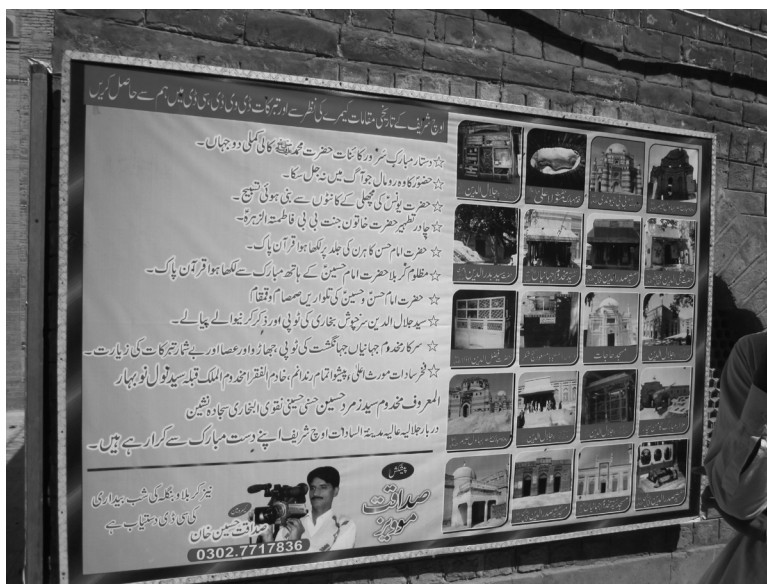 اوچ شریف کے تاریخی مقامات کیمرے کی نظر سے اور تبرکات ڈی وی ڈی، سی ڈی میں ہم سے حاصل کریں
☆ دستار مبارک سرور کائنات حضرت محمد ﷺ کالی کملی دو جہاں۔
☆ حضورؐ کا وہ رومال جو آگ میں نہ جل سکا۔
☆ حضرت یونسؑ کی مچھلی کے کانٹوں سے بنی ہوئی تسبیح۔
☆ چادر تطہیر حضرت خاتون جنت بی بی فاطمتہ الزہرہؑ۔
☆ حضرت امام حسنؑ کا ہرن کی جلد پر لکھا ہوا قرآن پاک۔
☆ مظلوم کربلا حضرت امام حسینؑ کے ہاتھ مبارک سے لکھا ہوا قرآن پاک۔
☆ حضرت امام حسنؑ و حسینؑ کی تلواریں صمصام و قمقام
☆ سید جلال الدین سرخپوش بخاری کی ٹوپی اور ذکر کرنیوالے پیالے۔
☆ سرکار مخدوم جہانیاں جہانگشت کی ٹوپی، جھاڑو اور عصا اور بے شمار تبرکات کی زیارت۔
☆ فخر سادات مورث اعلیٰ، پیشوا تمام رندانم، خادم الفقرا مخدوم الملک قبلہ سید نول نوبہار
المعروف مخدوم سید زمرد حسین حسنی حسینی نقوی البخاری سجادہ نشین
دربار جلالیہ عالیہ مدینۃ السادات اوچ شریف اپنے دست مبارک سے کرا رہے ہیں۔
جلال الدین
جلال الدین
جلال الدین
جلال الدین
پیشکش
صداقت
موویز
نیز کربلا و بنگلہ کی شب بیداری
کی سی ڈی دستیاب ہے
صداقت حسین خان
0302.7717836